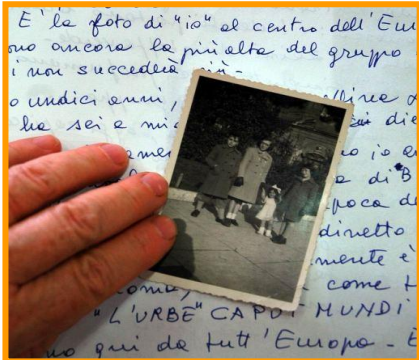 E' la foto di "io" al centro dell'Eur
ono ancora la più alta del gruppo
i non succederà più.
o undici anni,
ha sei e mi die
io
di B
poca de
diretto
mente è
Roma, come
"L'URBE" CAPUT MUNDI
no qui da tutt'Europa -